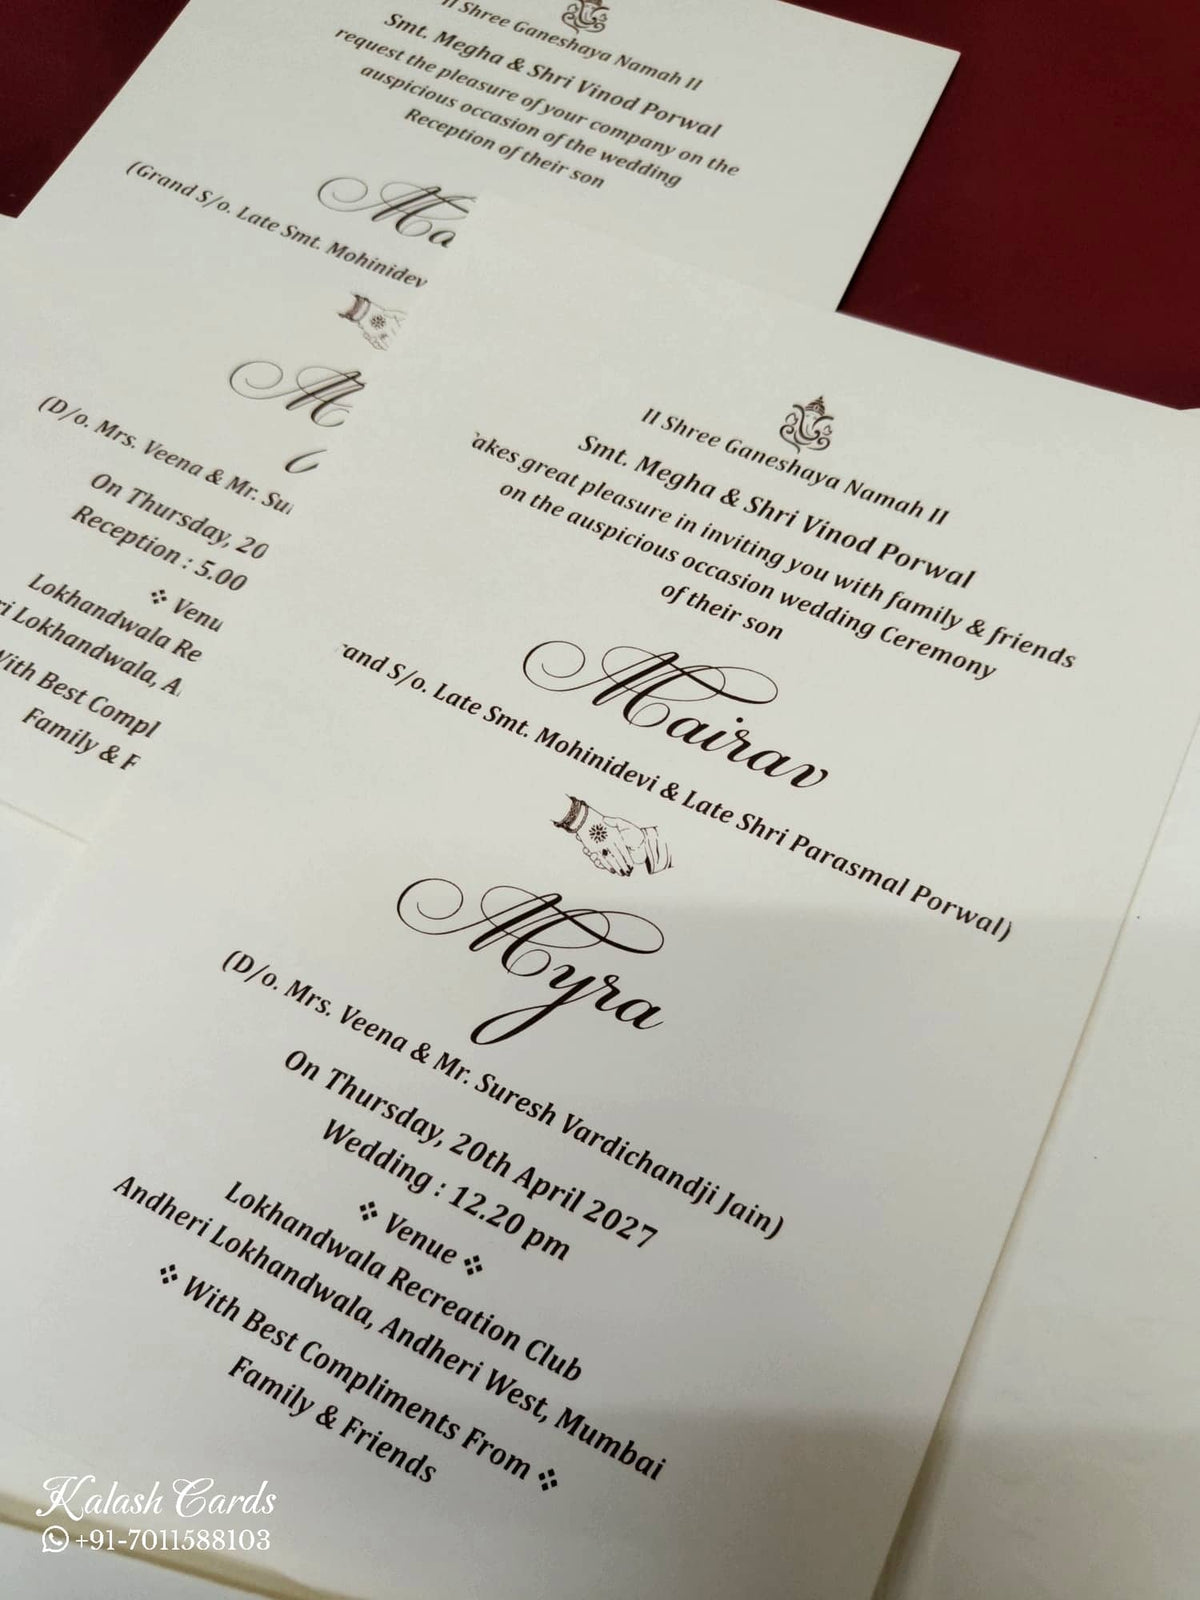 II Shree Ganeshaya Namah II
Smt. Megha & Shri Vinod Porwal
request the pleasure of your company on the
auspicious occasion of the wedding
Reception of their son
Ma
(Grand S/o. Late Smt. Mohinidev
M
(D/o. Mrs. Veena & Mr. Su
On Thursday, 20
Reception : 5.00
Venu
Lokhandwala Re
ri Lokhandwala, A
With Best Compl
Family & F
II Shree Ganeshaya Namah II
Smt. Megha & Shri Vinod Porwal
akes great pleasure in inviting you with family & friends
on the auspicious occasion wedding Ceremony
of their son
Mairav
and S/o. Late Smt. Mohinidevi & Late Shri Parasmal Porwal)
Myra
(D/o. Mrs. Veena & Mr. Suresh Vardichandji Jain)
On Thursday, 20th April 2027
Wedding : 12.20 pm
Venue
Lokhandwala Recreation Club
Andheri Lokhandwala, Andheri West, Mumbai
With Best Compliments From
Family & Friends
Kalash Cards
+91-7011588103